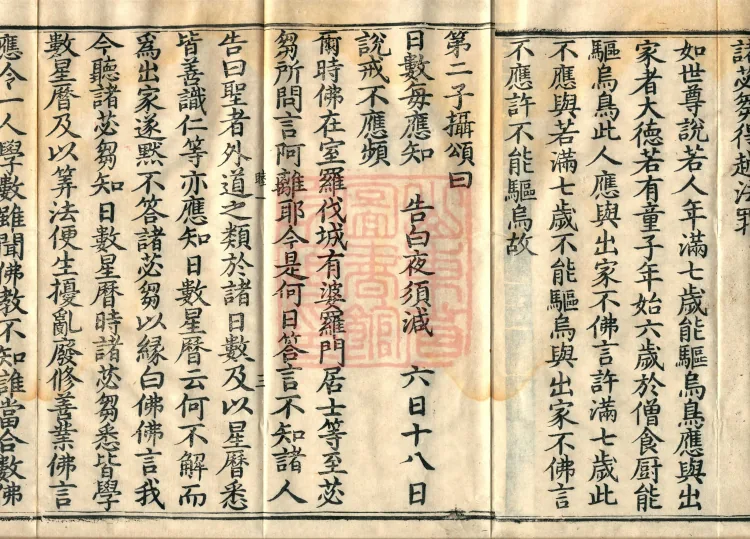 諸苾芻得越法罪
如世尊說若人年滿七歲能驅烏鳥應與出
家者大德若有童子年始六歲於僧食厨能
驅烏鳥此人應與出家不佛言許滿七歲此
不應與若滿七歲不能驅烏與出家不佛言
不應許不能驅烏故
第二子攝頌曰
日數每應知　告白夜須減　六日十八日
說戒不應頻
爾時佛在室羅伐城有婆羅門居士等至苾
芻所問言阿離耶今是何日答言不知諸人
一　三
告曰聖者外道之類於諸日數及以星曆悉
皆善識仁等亦應知日數星曆云何不解而
爲出家遂默不答諸苾芻以緣白佛佛言我
今聽諸苾芻知日數星曆時諸苾芻悉皆學
數星曆及以筭法便生擾亂廢修善業佛言
應令一人學數雖聞佛教不知誰當合數佛